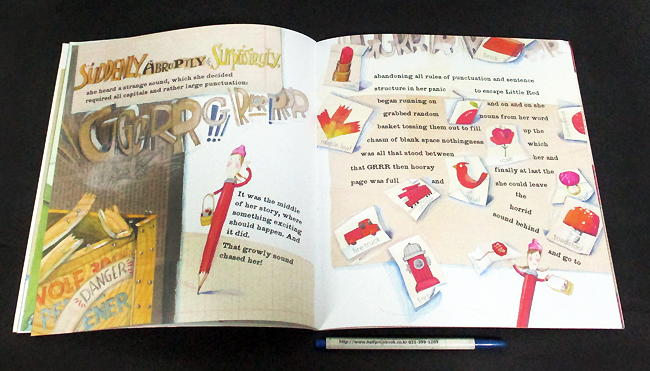 SUDDENLY, ABRUPTLY & SURPRISINGLY,
she heard a strange sound, which she decided
required all capitals and rather large punctuation:
It was the middle
of her story, where
something exciting
should happen. And
it did.
That growly sound
chased her!
DANGER
brick
abandoning all rules of punctuation and sentence
structure in her panic to escape Little Red
began running on and on and on she
grabbed random nouns from her word
basket tossing them out to fill up the
chasm of blank space nothingness which
was all that stood between her and
that GRRR then hooray finally at last the
page was full and she could leave
the
horrid
sound behind
and go to
maple leaf
rose
fire truck
http://www.halfpricebook.co.kr 031-399-1289